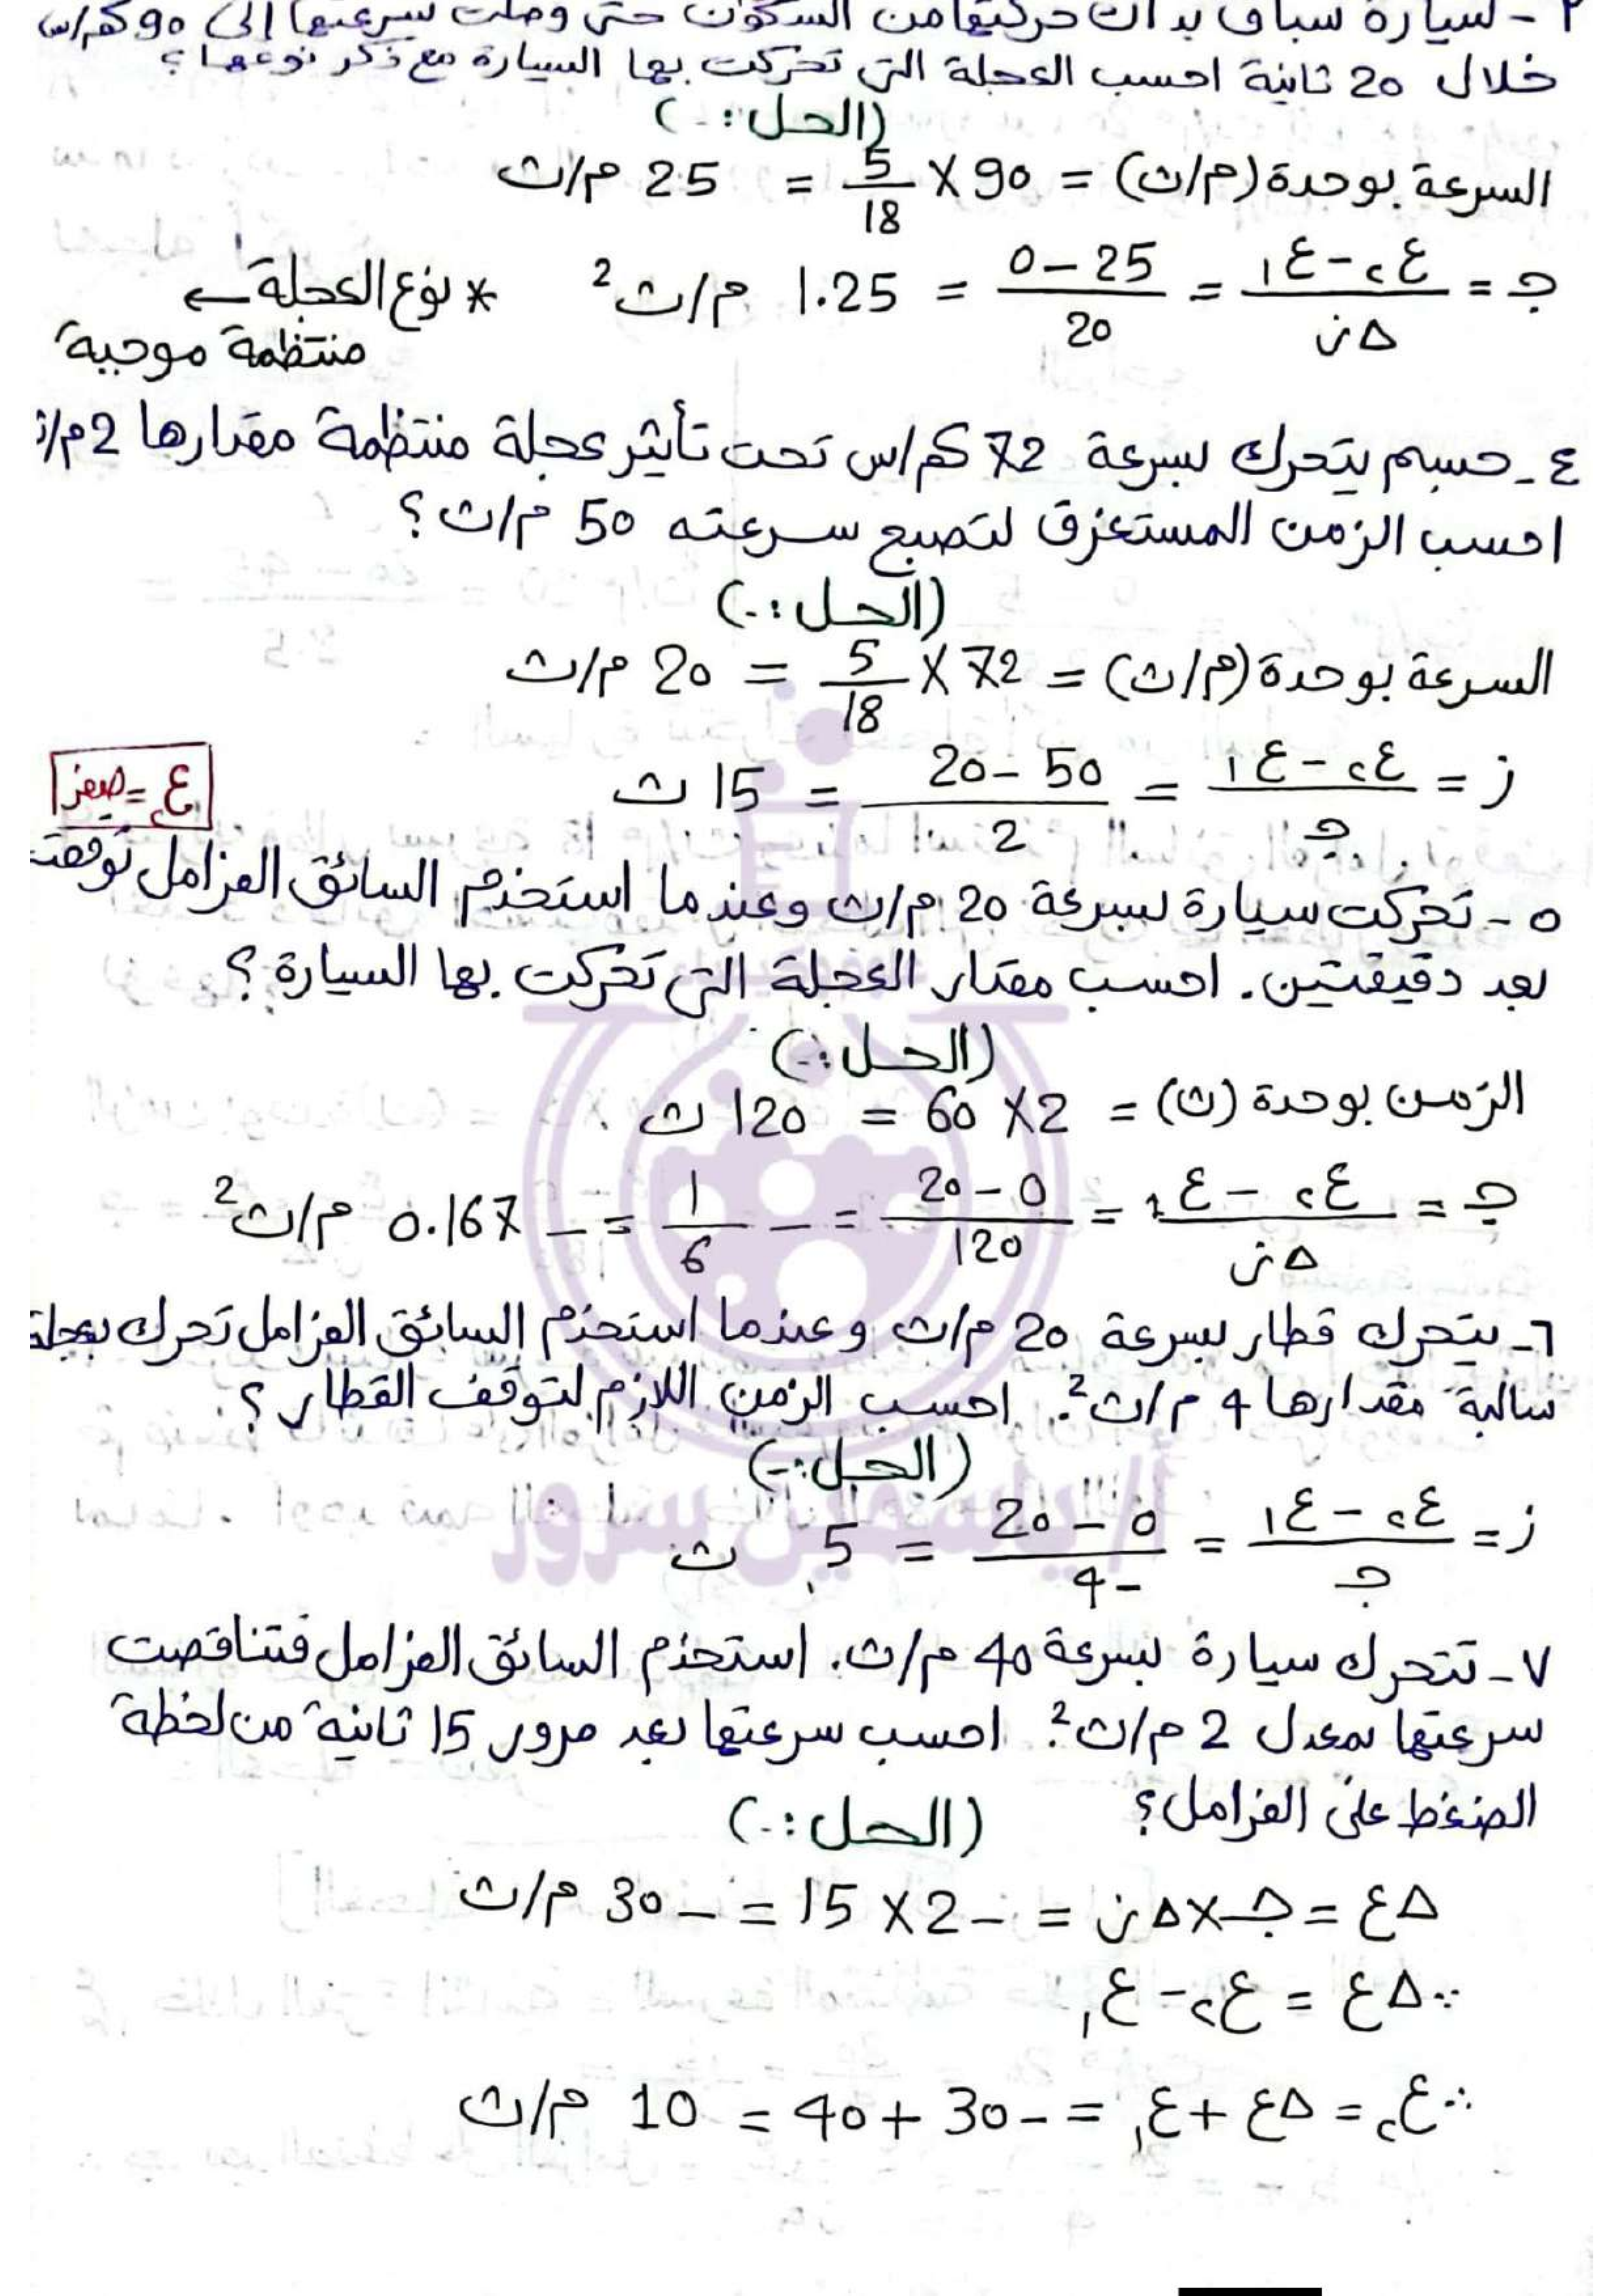 سيارة سباق بدأت حركتها من السكون حتى وصلت سرعتها إلى 90 كم/س
خلال 20 ثانية احسب العجلة التي تحركت بها السيارة مع ذكر نوعها؟
(الحل :-)
السرعة بوحدة (م/ث) = 90 × 5/18 = 25 م/ث
جـ = (ع٢ - ع١)/Δز = (25 - 0)/20 = 1.25 م/ث² * نوع العجلة ←
منتظمة موجبة
٤- جسم يتحرك بسرعة 72 كم/س تحت تأثير عجلة منتظمة مقدارها 2 م/ث
احسب الزمن المستغرق لتصبح سرعته 50 م/ث؟
(الحل :-)
السرعة بوحدة (م/ث) = 72 × 5/18 = 20 م/ث
ز = (ع٢ - ع١)/جـ = (50 - 20)/2 = 15 ث
ع٢ = صفر
٥- تحركت سيارة بسرعة 20 م/ث وعندما استخدم السائق الفرامل توقفت
بعد دقيقتين. احسب مقدار العجلة التي تحركت بها السيارة؟
(الحل :-)
الزمن بوحدة (ث) = 2 × 60 = 120 ث
جـ = (ع٢ - ع١)/Δز = (0 - 20)/120 = - 1/6 = - 0.167 م/ث²
٦- يتحرك قطار بسرعة 20 م/ث وعندما استخدم السائق الفرامل تحرك بعجلة
سالبة مقدارها 4 م/ث². احسب الزمن اللازم لتوقف القطار؟
(الحل :-)
ز = (ع٢ - ع١)/جـ = (0 - 20)/-4 = 5 ث
أ/ ياسمين سرور
٧- تتحرك سيارة بسرعة 40 م/ث. استخدم السائق الفرامل فتناقصت
سرعتها بمعدل 2 م/ث². احسب سرعتها بعد مرور 15 ثانية من لحظة
الضغط على الفرامل؟
(الحل :-)
Δع = جـ × Δز = -2 × 15 = -30 م/ث
∵ Δع = ع٢ - ع١
∴ ع٢ = Δع + ع١ = -30 + 40 = 10 م/ث